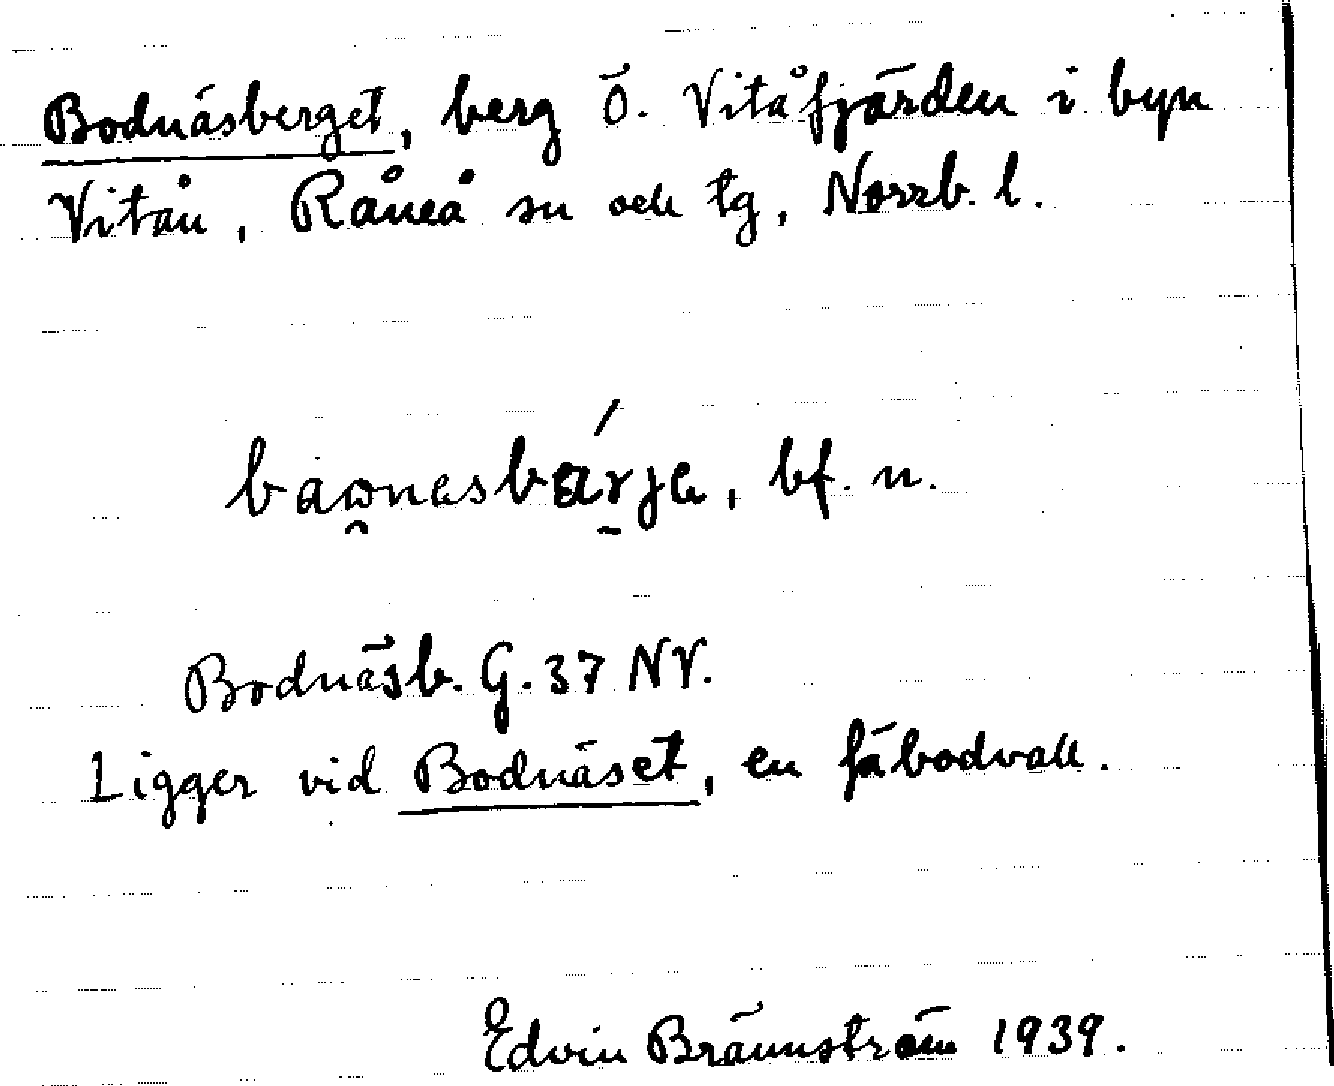 Bodnäsberget, berg Ö. Vitåfjärden i byn
Vitån, Råneå sn och tg, Norrb. l.
bf. n.
Bodnäsb. G. 37 NV.
Ligger vid Bodnäset, en fäbodvall.
Edvin Brännström 1939.